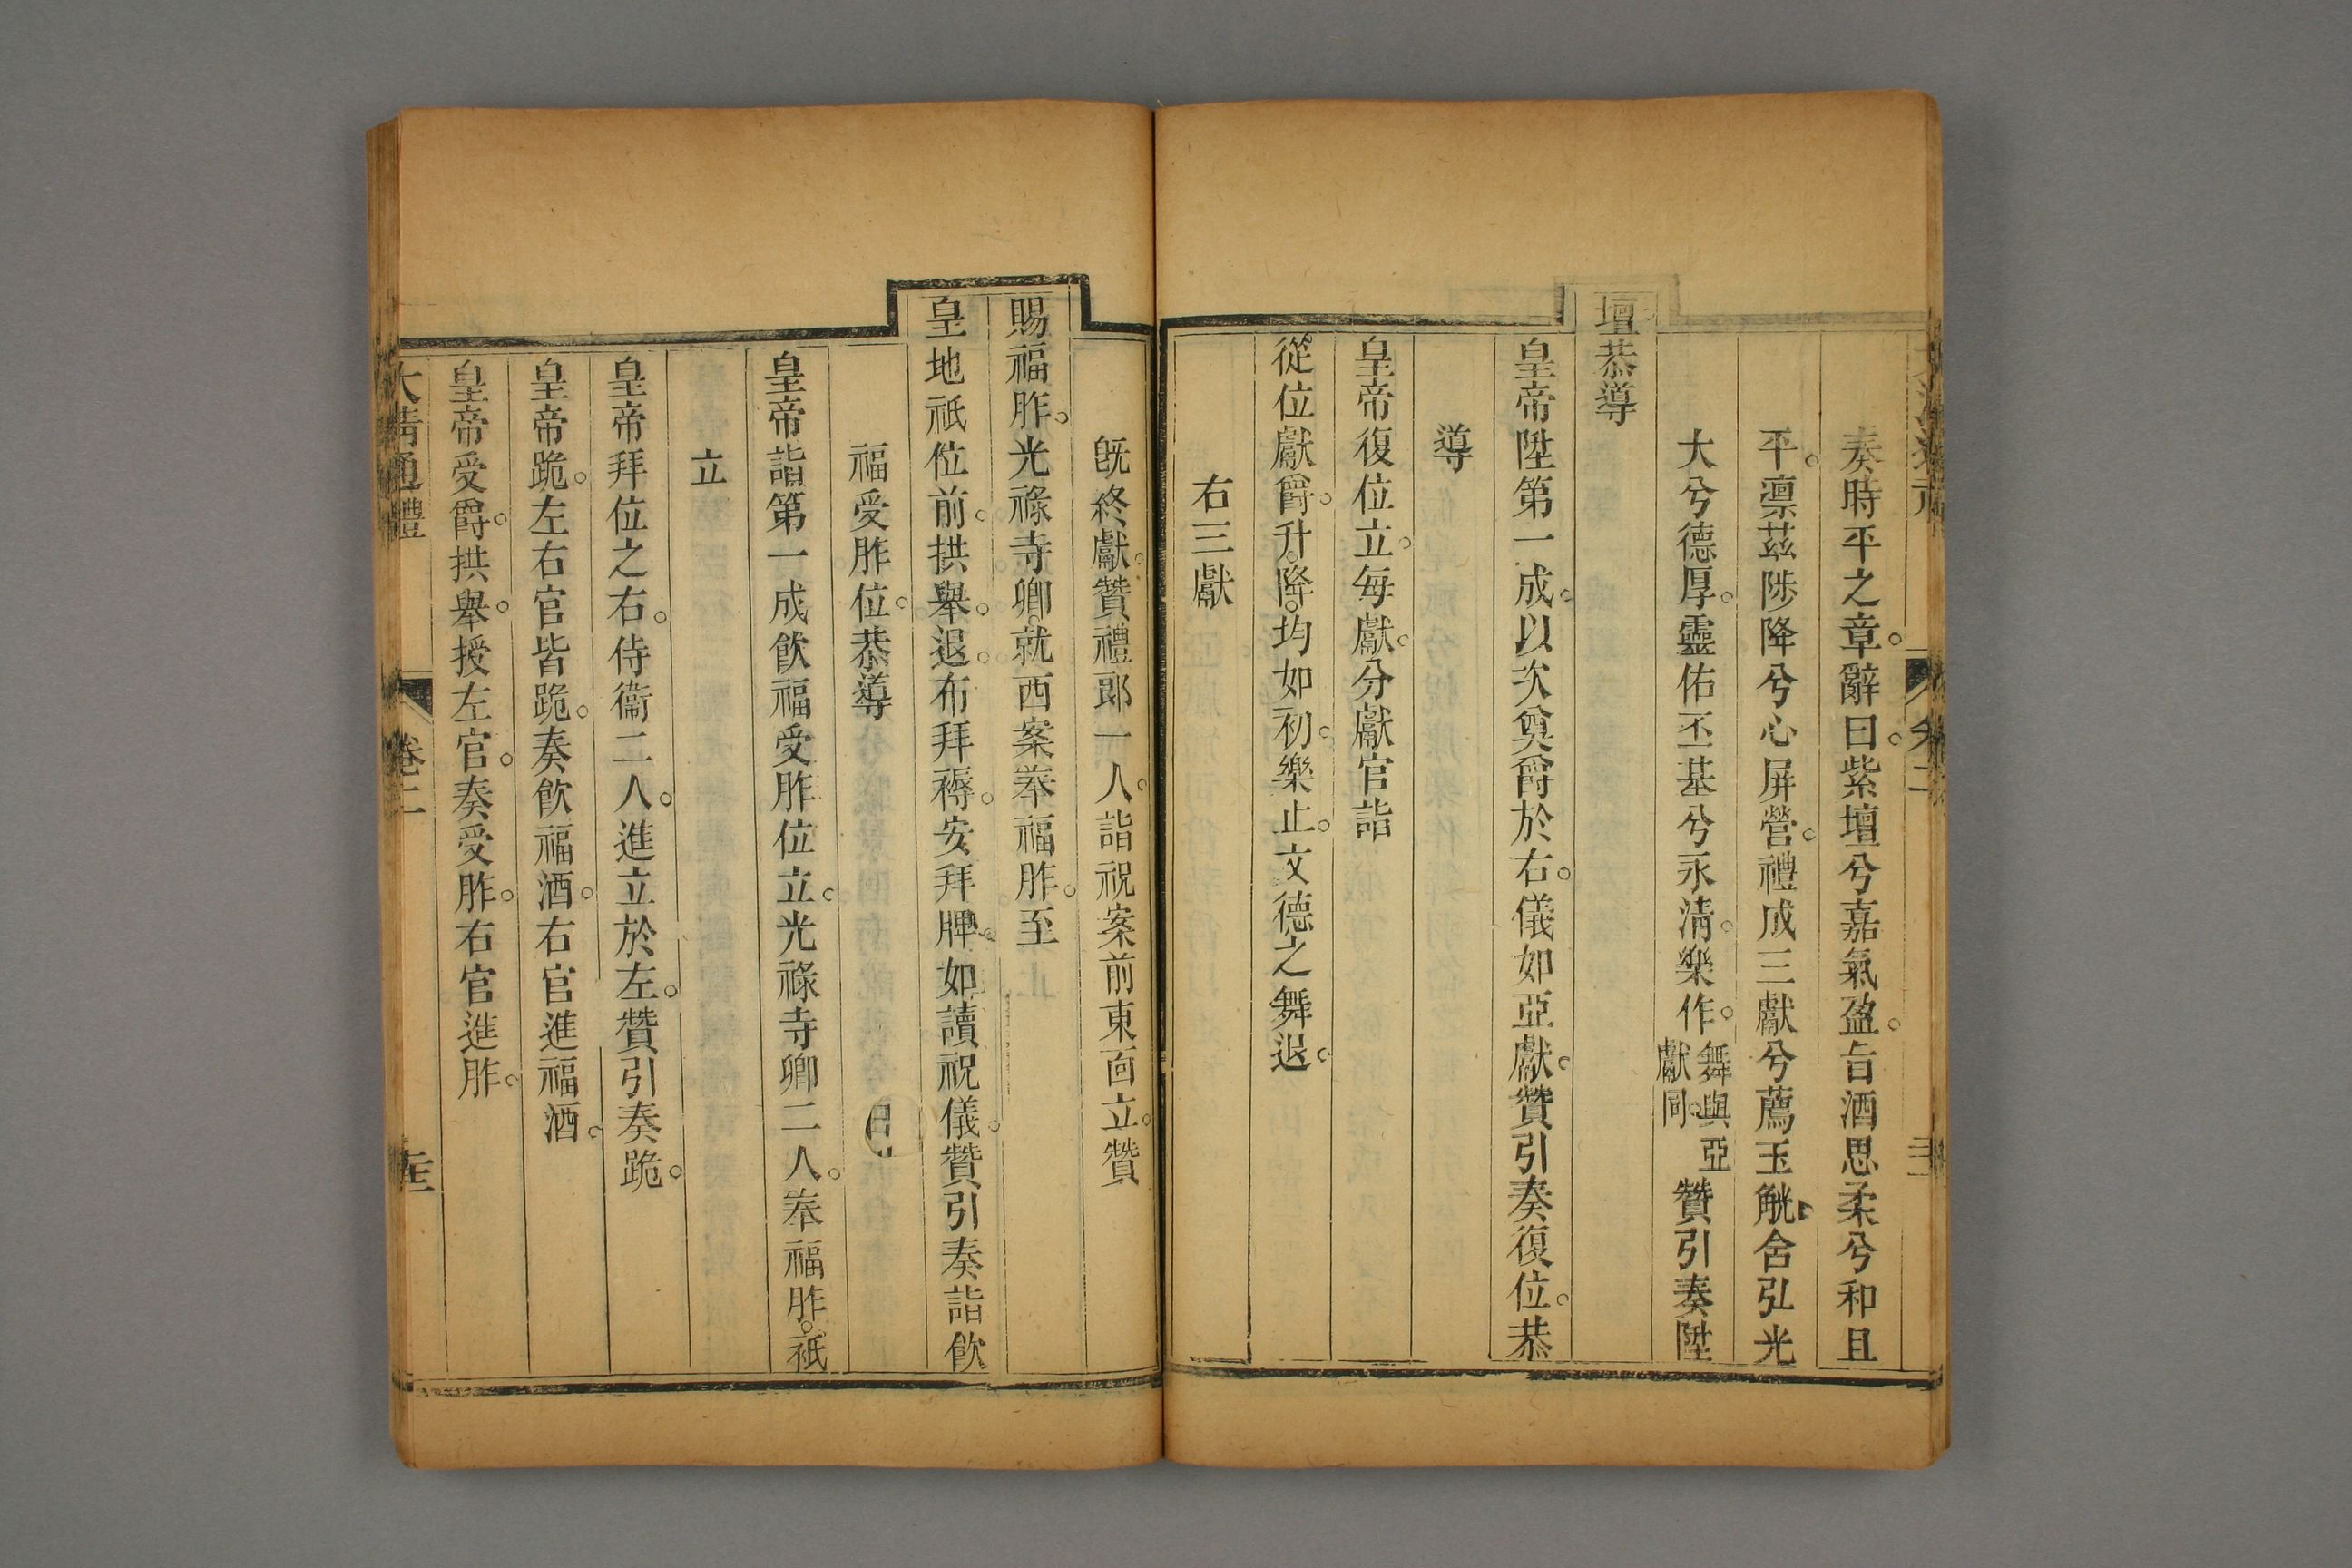 奏時平之章。辭曰。紫壇兮嘉氣盈。旨酒思柔兮和且
平。凛茲陟降兮心屏營。禮成三獻兮薦玉觥。含弘光
大兮德厚。靈佑丕基兮永清。樂作。舞與亞獻同。贊引奏陞
壇恭導
皇帝陞第一成。以次奠爵於右。儀如亞獻。贊引奏復位。恭
導
皇帝復位立。每獻。分獻官詣
從位獻爵。升。降。均如初。樂止。文德之舞退。
右三獻
既終獻。贊禮郎一人。詣祝案前東面立。贊
賜福胙。光祿寺卿。就西案奉福胙。至
皇地祇位前。拱舉。退。布拜褥。安拜牌。如讀祝儀。贊引奏詣飲
福受胙位。恭導
皇帝詣第一成飲福受胙位立。光祿寺卿二人。奉福胙。祗
立
皇帝拜位之右。侍衞二人。進立於左。贊引奏跪。
皇帝跪。左右官皆跪。奏飲福酒。右官進福酒。
皇帝受爵。拱舉。授左官。奏受胙。右官進胙。
大清通禮
卷二